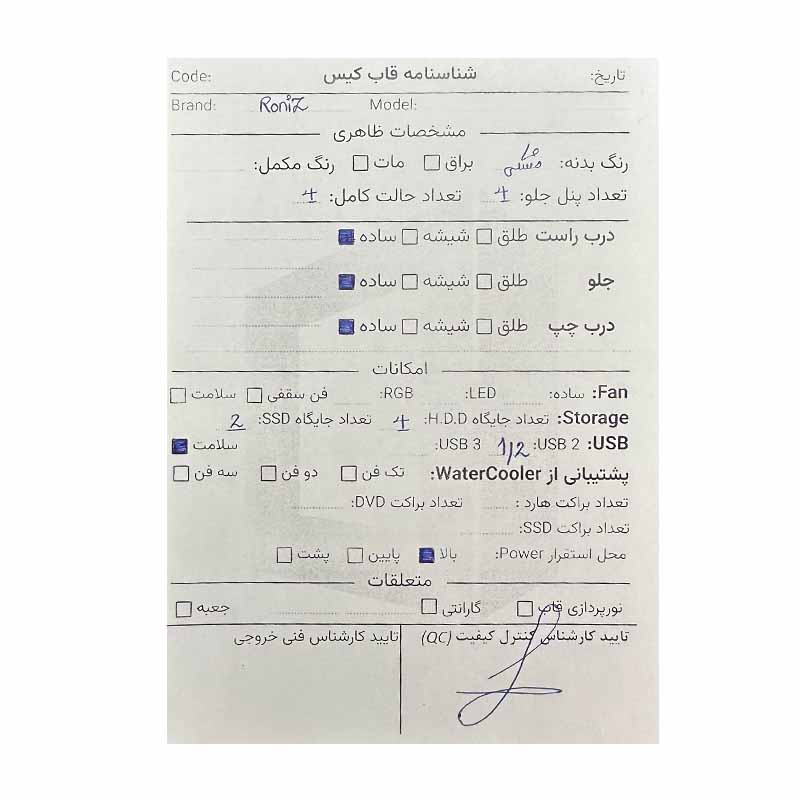 تاریخ: شناسنامه قاب کیس Code:
Brand: RoniZ Model:
مشخصات ظاهری
رنگ بدنه: مشکی براق مات رنگ مکمل:
تعداد پنل جلو: 4 تعداد حالت کامل: 4
درب راست طلق شیشه ساده
جلو طلق شیشه ساده
درب چپ طلق شیشه ساده
امکانات
Fan: ساده: LED: RGB: فن سقفی سلامت
Storage: تعداد جایگاه H.D.D: 4 تعداد جایگاه SSD: 2
USB: USB 2: 1/2 USB 3: سلامت
پشتیبانی از WaterCooler: تک فن دو فن سه فن
تعداد براکت هارد : تعداد براکت DVD:
تعداد براکت SSD:
محل استقرار Power: بالا پایین پشت
متعلقات
نورپردازی قاب گارانتی جعبه
تایید کارشناس کنترل کیفیت (QC) تایید کارشناس فنی خروجی